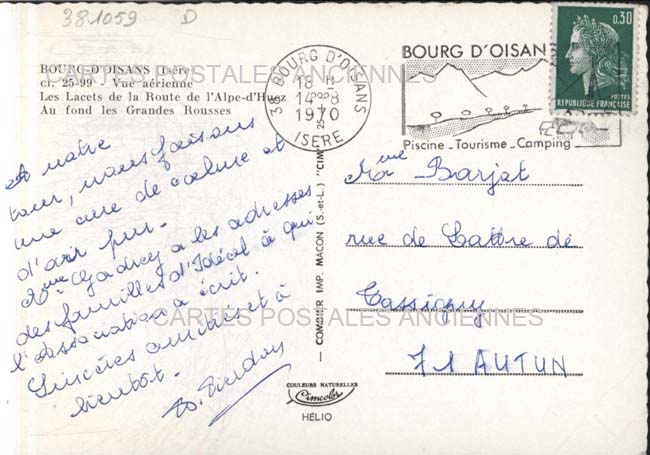 38.1059 D
BOURG-D'OISANS (Isère)
ct. 25-99 - Vue aérienne
Les Lacets de la Route de l'Alpe-d'Huez
Au fond les Grandes Rousses
A notre
tour, nous faisons
une cure de calme et
d'air pur.
Mme a les adresses
des familles d'Idéal à qui
l'association a écrit.
Sincères amitiés et à
bientôt.
38 BOURG D'OISANS
18 H
14-8
1970
ISERE
BOURG D'OISANS
Piscine - Tourisme - Camping
0,30
POSTES
REPUBLIQUE FRANÇAISE
COMBIER IMP. MACON (S.-et-L.) "CIM"
Mme Barjat
rue de Lattre de
Tassigny
71 AUTUN
COULEURS NATURELLES
Cimcolor
HÉLIO
CARTES POSTALES ANCIENNES
CARTES POSTALES ANCIENNES